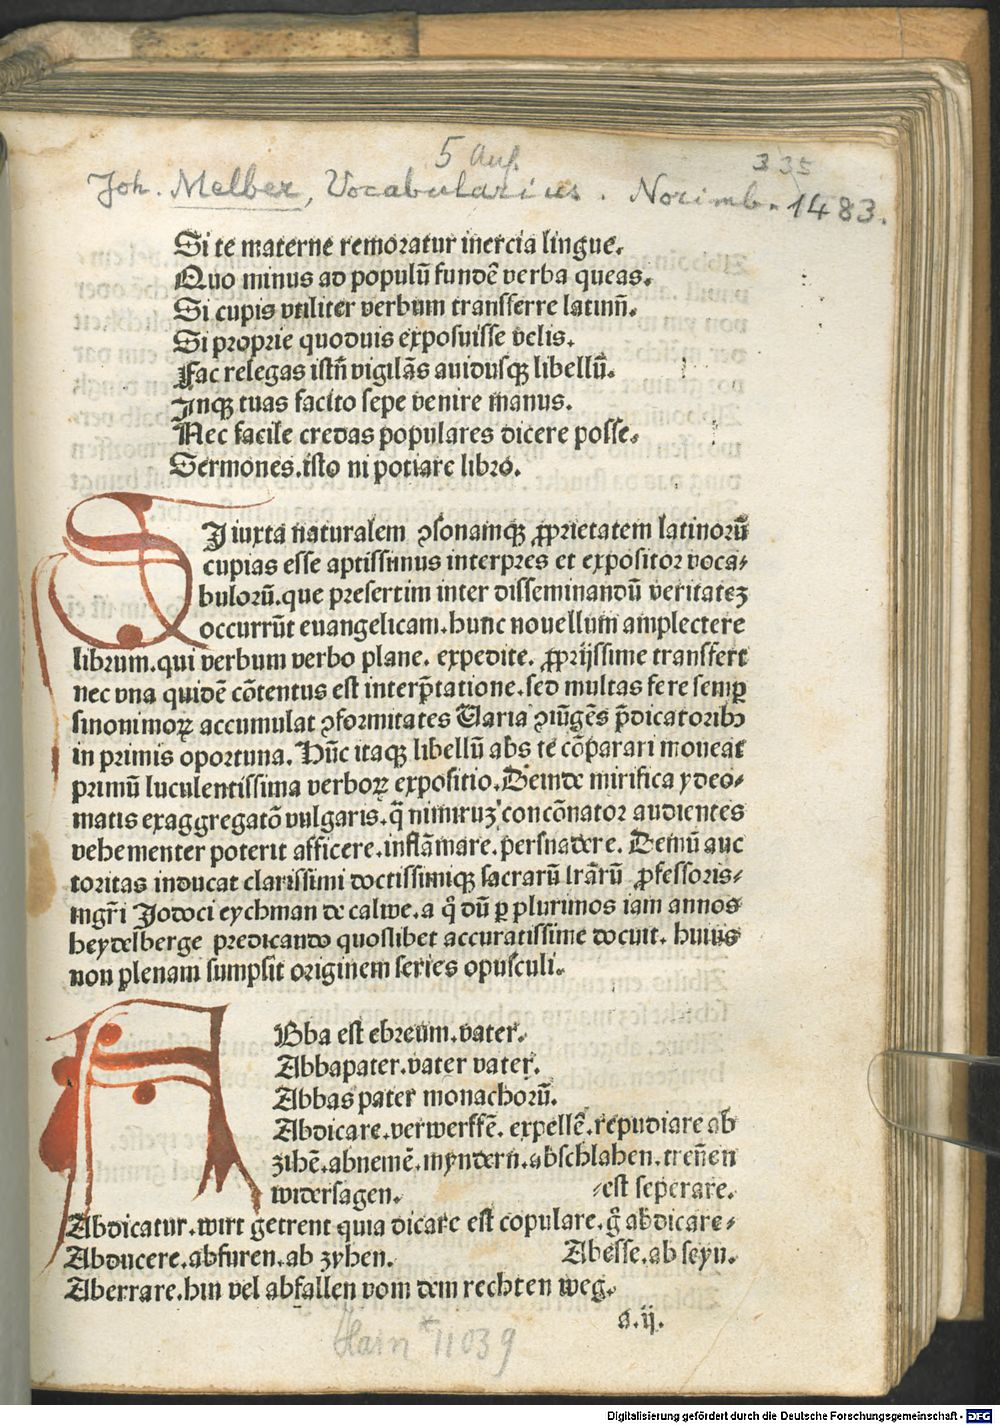 5 Auf.
335
Joh. Melber, Vocabularius. Norimb. 1483.
Si te materne remoratur inercia lingue.
Quo minus ad populū fundē verba queas.
Si cupis vtiliter verbum transferre latinū.
Si proprie quoduis exposuisse velis.
Fac relegas istū vigilās auidusqꝫ libellū.
Inqꝫ tuas facito sepe venire manus.
Nec facile credas populares dicere posse.
Sermones.isto ni potiare libro.
SI iuxta naturalem ꝯsonamqꝫ ꝓprietatem latinorū
cupias esse aptissimus interpres et expositor voca⸗
bulorū.que presertim inter disseminandū veritateꝫ
occurrūt euangelicam.hunc nouellum amplectere
librum.qui verbum verbo plane. expedite. ꝓprijssime transfert
nec vna quidē cōtentus est interp̄tatione.sed multas fere semꝑ
sinonimoꝝ accumulat ꝯformitates Varia ꝯiūgēs p̄dicatoribꝫ
in primis oportuna. Hūc itaqꝫ libellū abs te cōparari moueat
primū luculentissima verboꝝ expositio.Deinde mirifica ydeo⸗
matis exaggregatō vulgaris.q̄ nimiruꝫ concōnator audientes
vehementer poterit afficere.inflāmare.persuadere. Demū auc
toritas inducat clarissimi doctissimiqꝫ sacrarū lrārū ꝓfessoris⸗
mgr̄i Jodoci eychman de calwe.a q̄ dū ꝑ plurimos iam annos
heydelberge predicando quoslibet accuratissime docuit. huius
non plenam sumpsit originem series opusculi.
ABba est ebreum.vater.
Abbapater.vater vater.
Abbas pater monachorū.
Abdicare.verwerffē. expellē.repudiare ab
zihē.abnemē.myndern.abschlahen.trennen
widersagen. ⸗est seperare.
Abdicatur.wirt getrent quia dicare est copulare.g̊ abdicare⸗
Abducere.abfuren.ab zyhen. Abesse.ab seyn.
Aberrare.hin vel abfallen vom dem rechten weg.
a.ij.
Hain *11039
Digitalisierung gefördert durch die Deutsche Forschungsgemeinschaft - DFG